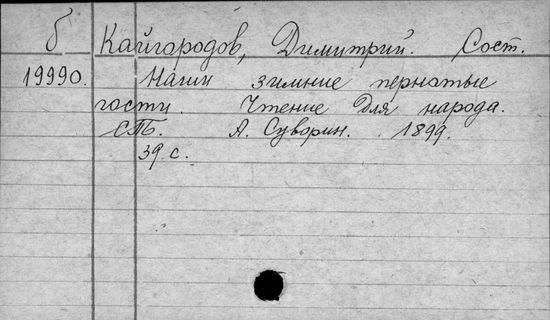 б Кайгородов, Димитрий. Сост.
19990. Наши зимние пернатые
гости. Чтение для народа.
СПБ. А. Суворин. 1899.
39 с.